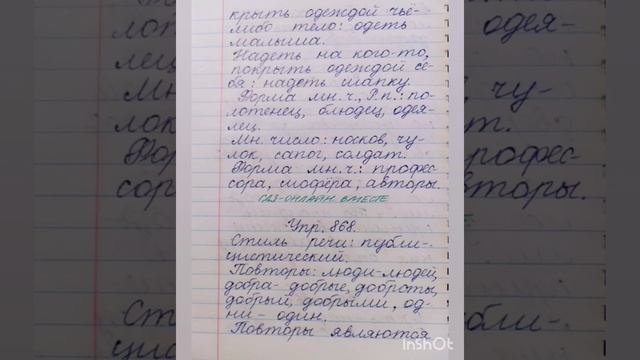 крыть одеждой чьё-
либо тело: одеть
малыша.
Надеть на кого-то,
покрыть одеждой се-
бя: надеть шапку.
Форма мн.ч., Р.п.: по-
лотенец, блюдец, одея-
лец.
Мн. число: носков, чу-
лок, сапог, солдат.
Форма мн.ч.: профес-
сора, шофёра, авторы.
ГДЗ-ОНЛАЙН ВМЕСТЕ
Упр. 868.
Стиль речи: публи-
цистический.
Повторы: люди-людей,
добра- добрые, доброты,
добрый, добрыми, од-
ни- один.
Повторы являются
InShOt